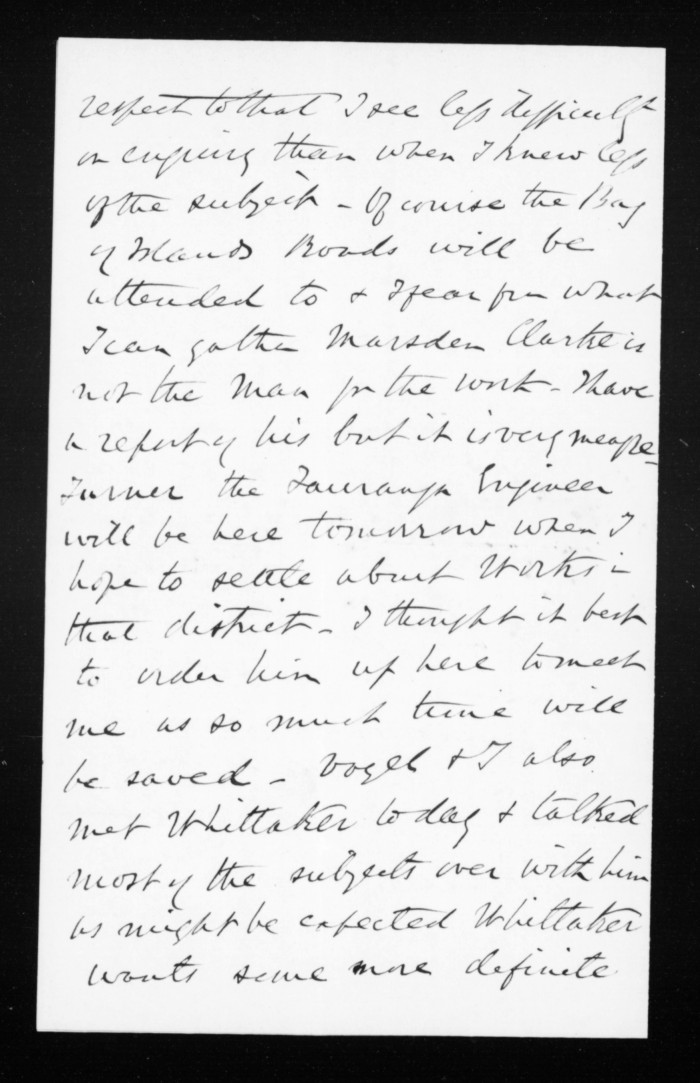 respect to that I see less difficulty
on enquiry than when I knew less
of the subject - Of course the Bay
of Islands Roads will be
attended to & I fear from what
I can gather Marsden Clarke is
not the man for the work - I have
a report of his but it is very meagre
Turner the Tauranga Engineer
will be here tomorrow when I
hope to settle about Works in
that district - I thought it best
to order him up here to meet
me as so much time will
be saved - Vogel & I also
met Whittaker today & talked
most of the subjects over with him
as might be expected Whittaker
wants some more definite